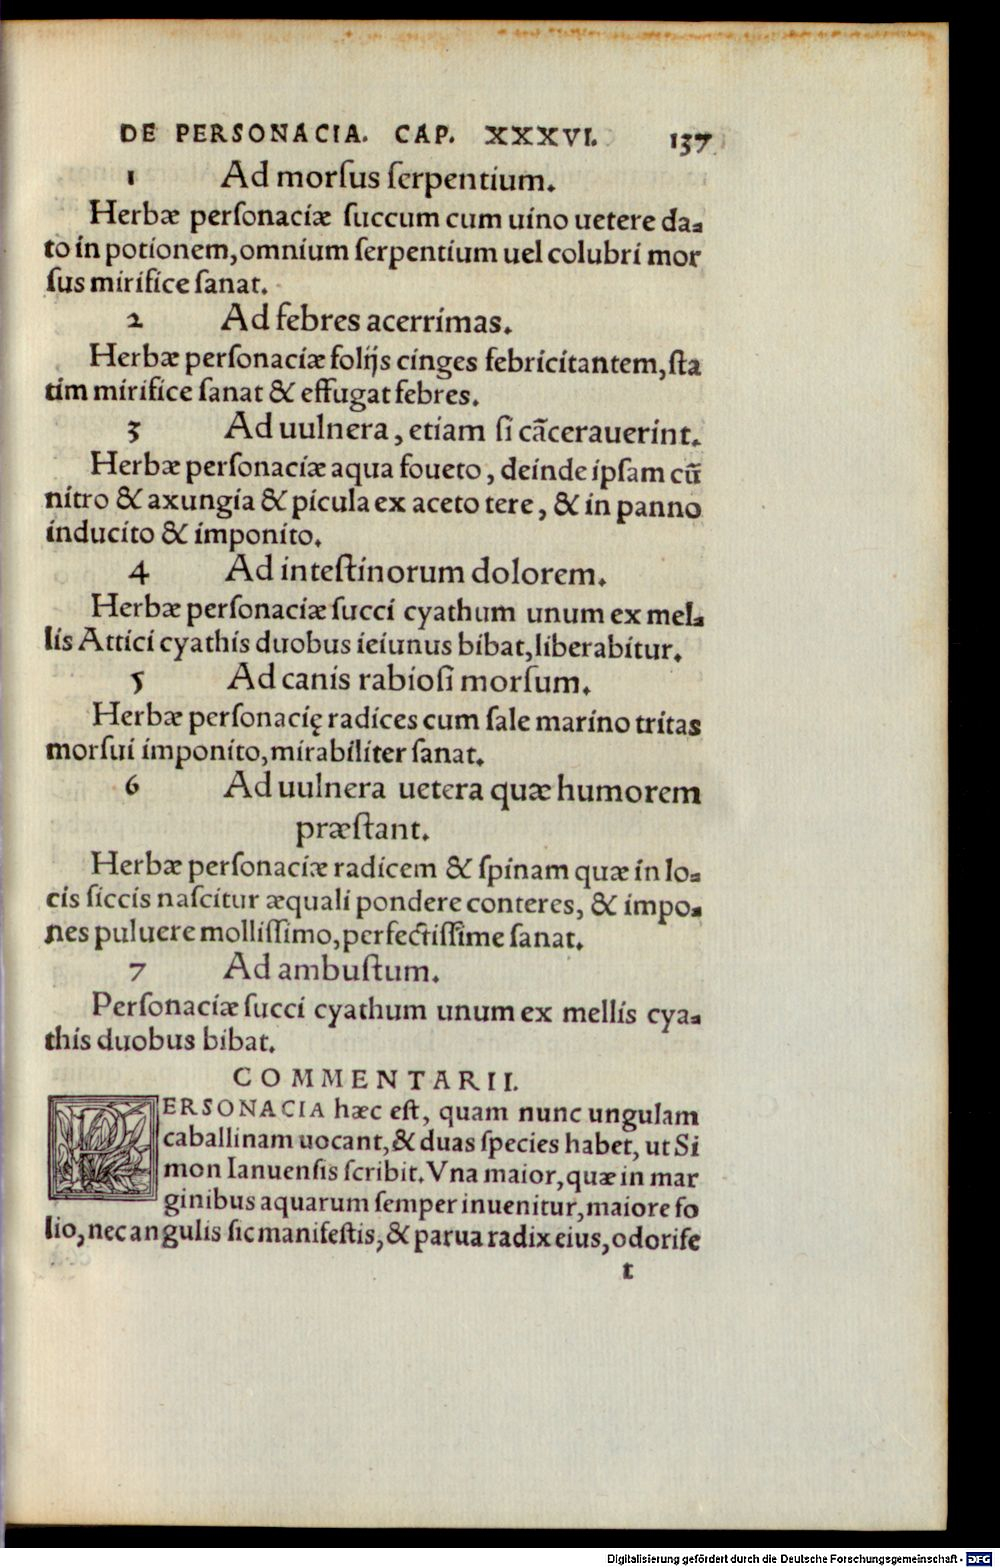 DE PERSONACIA. CAP. XXXVI. 137
1 Ad morſus ſerpentium.
Herbæ perſonaciæ ſuccum cum uino uetere da-
to in potionem, omnium ſerpentium uel colubri mor
ſus mirifice ſanat.
2 Ad febres acerrimas.
Herbæ perſonaciæ folijs cinges febricitantem, ſta
tim mirifice ſanat & effugat febres.
3 Ad uulnera, etiam ſi cācerauerint.
Herbæ perſonaciæ aqua foueto, deinde ipſam cū
nitro & axungia & picula ex aceto tere, & in panno
inducito & imponito.
4 Ad inteſtinorum dolorem.
Herbæ perſonaciæ ſucci cyathum unum ex mel-
lis Attici cyathis duobus ieiunus bibat, liberabitur.
5 Ad canis rabioſi morſum.
Herbæ perſonacię radices cum ſale marino tritas
morſui imponito, mirabiliter ſanat.
6 Ad uulnera uetera quæ humorem
præſtant.
Herbæ perſonaciæ radicem & ſpinam quæ in lo-
cis ſiccis naſcitur æquali pondere conteres, & impo-
nes puluere molliſſimo, perfectiſſime ſanat.
7 Ad ambuſtum.
Perſonaciæ ſucci cyathum unum ex mellis cya-
this duobus bibat.
COMMENTARII.
PERSONACIA hæc eſt, quam nunc ungulam
caballinam uocant, & duas ſpecies habet, ut Si
mon Ianuenſis ſcribit. Vna maior, quæ in mar
ginibus aquarum ſemper inuenitur, maiore fo
lio, nec angulis ſic manifeſtis, & parua radix eius, odorife
t
Digitalisierung gefördert durch die Deutsche Forschungsgemeinschaft - DFG